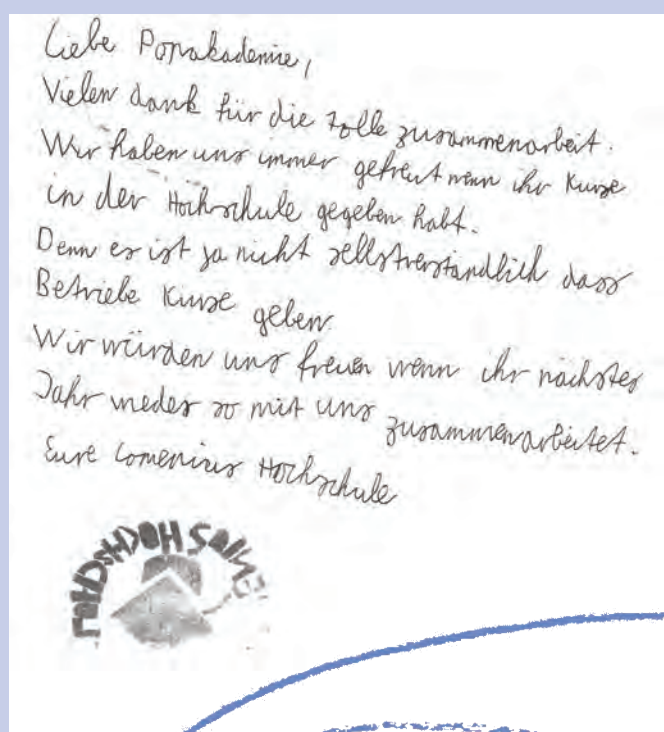 Liebe Popakademie,
Vielen dank für die tolle zusammenarbeit.
Wir haben uns immer gefreut wenn ihr Kurse
in der Hochschule gegeben habt.
Denn es ist ja nicht selbstverständlich dass
Betriebe Kurse geben
Wir würden uns freuen wenn ihr nächstes
Jahr wieder so mit uns zusammenarbeitet.
Eure Comenius Hochschule